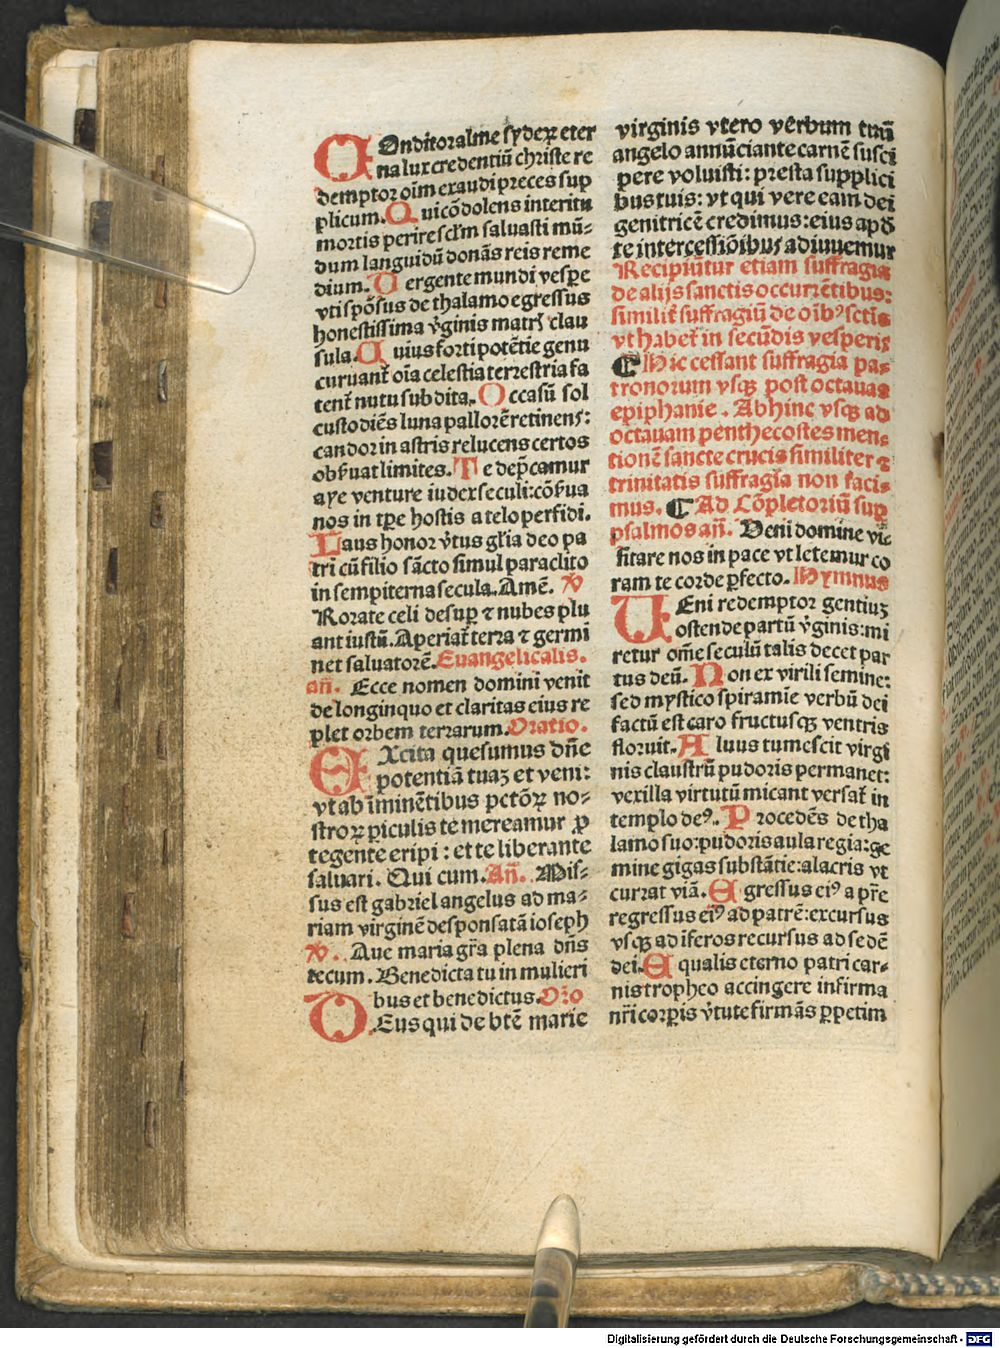 COnditor alme syderꝝ eter
na lux credentiū christe re
demptor oīm exaudi preces sup
plicum. Qui cōdolens interitu
mortis perire seclm̄ saluasti mū⸗
dum languidū donās reis reme
dium. Uergente mundi vespe
vti spōsus de thalamo egressus
honestissima v̓ginis matrꝭ clau
sula. Cuius forti potētie genu
curuant᷑ oīa celestia terrestria fa
tent᷑ nutu subdita. Occasū sol
custodiēs luna pallorē retinens:
candor in astris relucens certos
obẜuat limites. Te dep̄camur
aye venture iudex seculi: cōẜua
nos in tp̄e hostis a telo perfidi.
Laus honor v̓tus gl̓ia deo pa
tri cū filio sācto simul paraclito
in sempiterna secula. Amē. ℣
Rorate celi desuꝑ ⁊ nubes plu
ant iustū. Aperiat᷑ terra ⁊ germi
net saluatorē. Euangelicalis.
añ. Ecce nomen domini venit
de longinquo et claritas eius re
plet orbem terrarum. Oratio.
EXcita quesumus dn̄e
potentiā tuaꝫ et veni:
vt ab īminētibus pctōꝝ no⸗
stroꝝ ꝑiculis te mereamur ꝓ
tegente eripi: et te liberante
saluari. Qui cum. Añ. Mis⸗
sus est gabriel angelus ad ma⸗
riam virginē desponsatā ioseph
℣. Aue maria gr̄a plena dn̄s
tecum. Benedicta tu in mulieri
bus et benedictus. Or̄o
DEus qui de btē marie
virginis vtero verbum tuū
angelo annūciante carnē susci
pere voluisti: presta supplici
bus tuis: vt qui vere eam dei
genitricē credimus: eius apđ
te intercessiōibus adiuuemur
Recipiūtur etiam suffragia
de alijs sanctis occurrētibus:
similit᷑ suffragiū de oībꝰ sctīs
vt habet᷑ in secūdis vesperis
¶ Hic cessant suffragia pa⸗
tronorum vsqꝫ post octauas
epiphanie. Abhinc vsqꝫ ad
octauam penthecostes men⸗
tionē sancte crucis similiter ⁊
trinitatis suffragia non faci⸗
mus. ¶ Ad Cōpletoriū sup
psalmos añ. Veni domine vi⸗
sitare nos in pace vt letemur co
ram te corde ꝑfecto. Hymnus
UEni redemptor gentiuꝫ
ostende partū v̓ginis: mi
retur om̄e seculū talis decet par
tus deū. Non ex virili semine:
sed mystico spiramie verbū dei
factū est caro fructusqꝫ ventris
floruit. Aluus tumescit virgi
nis claustrū pudoris permanet:
vexilla virtutū micant versat᷑ in
templo deꝰ. Procedēs de tha
lamo suo: pudoris aula regia: ge
mine gigas substātie: alacris vt
currat viā. Egressus eiꝰ a pr̄e
regressus eiꝰ ad patrē: excursus
vsqꝫ ad īferos recursus ad sedē
dei. Equalis eterno patri car⸗
nis tropheo accingere infirma
nr̄i corꝑis v̓tute firmās ꝑpetim
Digitalisierung gefördert durch die Deutsche Forschungsgemeinschaft - DFG